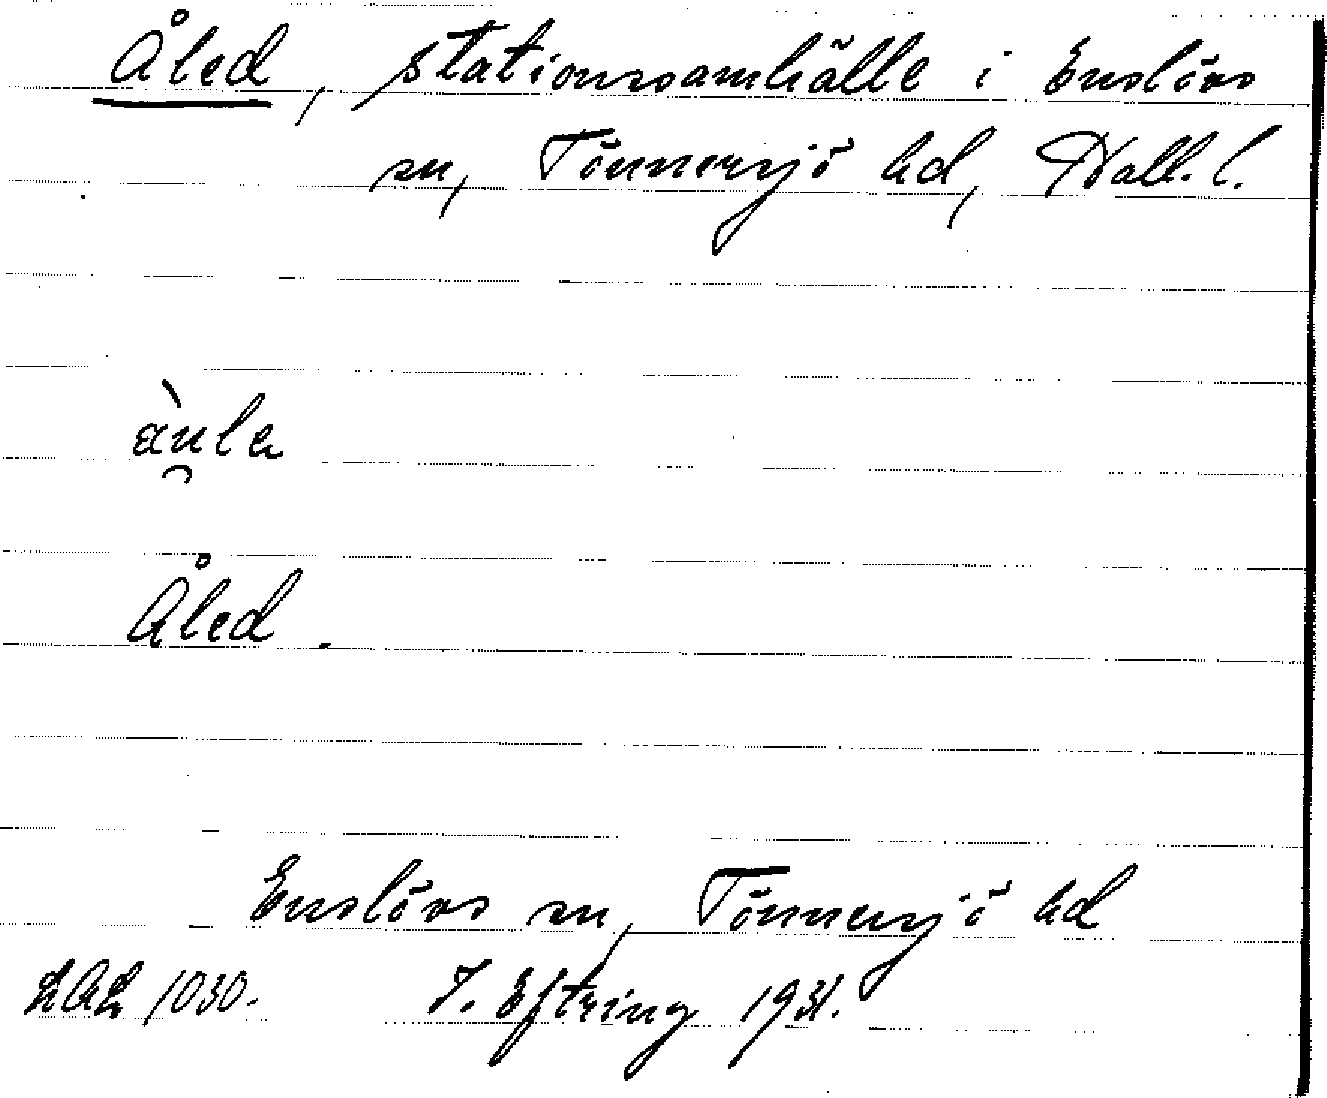 Åled, stationssamhälle i Enslövs
sn, Tönnersjö hd, Hall. l.
Åled.
Enslövs sn, Tönnersjö hd
LAL 1030. J. Eftring 1931.